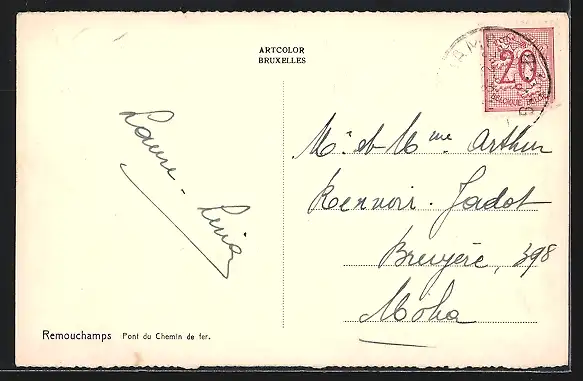 ARTCOLOR
BRUXELLES
20
BELGIQUE
Laure - Livia
Mr. et Mme Arthur
Renvoir. Jadot
Bruyère, 398
Moha
Remouchamps Pont du Chemin de fer.